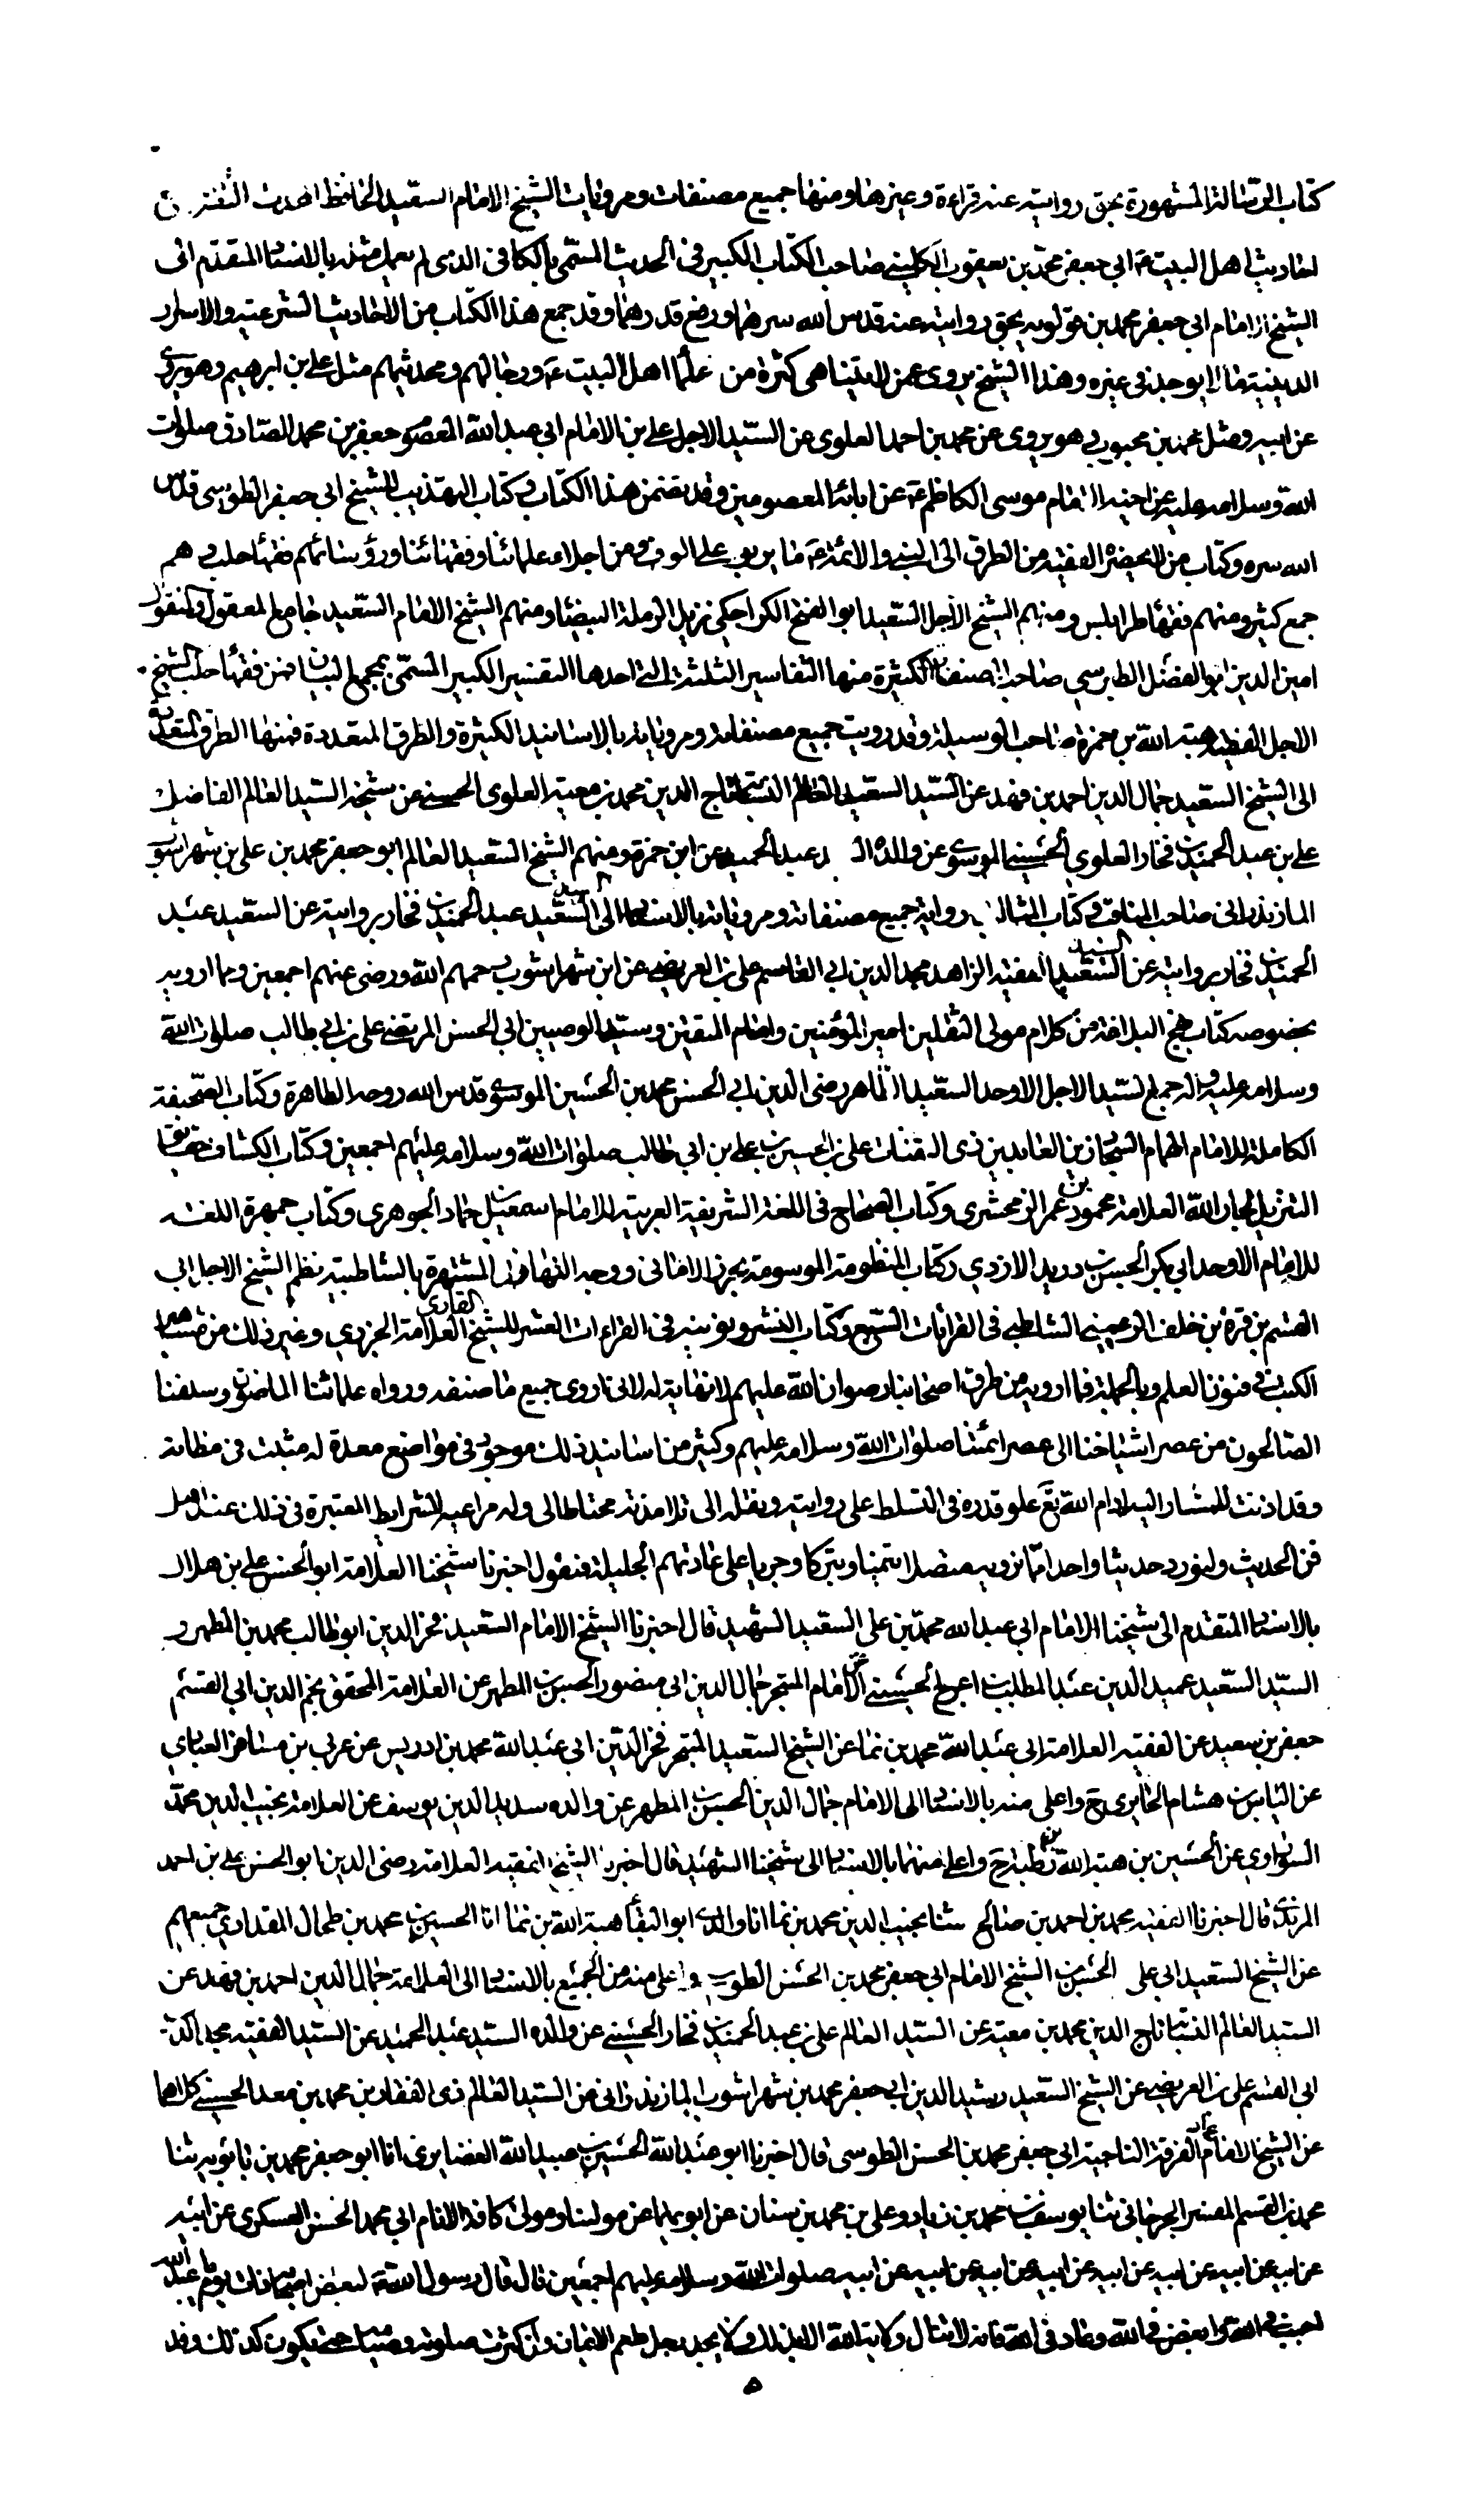 كتاب الرسالة المشهورة بحق روايته عنه قراءة وغيرها ومنها جميع مصنفات ومرويات الشيخ الامام السعيد الحافظ المحدث الثقة
احاديث اهل البيت ع ابي جعفر محمد بن يعقوب الكليني صاحب الكتاب الكبير في الحديث المسمى بالكافي الذي لم يعمل مثله بالاسناد المتقدم الى
الشيخ الامام ابي جعفر محمد بن قولويه بحق روايته عنه قدس الله سرهما ورفع قدرهما وقد جمع هذا الكتاب من الاحاديث الشرعية والاسرار
الدينية ما لا يوجد في غيره وهذا الشيخ يروى عمن لا يتناهى كثرة من علماء اهل البيت ع ورجالهم ومحدثيهم مثل علي بن ابرهيم وهو يروى
عن ابيه ومثل محمد بن محبوب وهو يروى عن محمد بن احمد العلوي عن السيد الاجل علي بن الامام ابي عبد الله المعصوم جعفر بن محمد الصادق صلوات
الله وسلامه عليه عن اخيه الامام موسى الكاظم ع عن ابائه المعصومين وقد تضمن هذا الكتاب وكتاب التهذيب للشيخ ابي جعفر الطوسي قدس
الله سره وكتاب من لا يحضره الفقيه من الطرق الى النبي والائمة ع ما يربو على الوف ومن اجلاء علمائنا وفقهائنا ورؤسائهم فقهاء حلب وهم
جمع كثير ومنهم فقهاء طرابلس ومنهم الشيخ الاجل السعيد ابو الفتح الكراجكي نزيل الرملة البيضاء ومنهم الشيخ الامام السعيد جامع المعقول والمنقول
امين الدين ابو الفضل الطبرسي صاحب المصنفات الكثيرة منها التفاسير الثلثة التي احدها التفسير الكبير المسمى بمجمع البيان فمن فقهاء حلب الشيخ
الاجل الفقيه هبة الله بن حمزة صاحب الوسيلة وقد رويت جميع مصنفاته ومروياته بالاسانيد الكثيرة والطرق المتعددة فمنها الطرق المتقدمة
الى الشيخ السعيد جمال الدين احمد بن فهد عن السيد السعيد العالم النسابة تاج الدين محمد بن معية العلوي الحسني عن شيخه السيد العالم الفاضل
علي بن عبد الحميد بن فخار العلوي الحسيني الموسوي عن والده عبد الحميد عن ابن حمزة ومنهم الشيخ السعيد العالم ابو جعفر محمد بن علي بن شهراشوب
المازندراني صاحب المناقب وكتاب المثالب رواية جميع مصنفاته ومروياته بالاسناد الى السيد السعيد عبد الحميد بن فخار بروايته عن السعيد عبد
الحميد بن فخار بروايته عن السيد السعيد الفقيه الزاهد مجد الدين ابي القاسم علي بن العريضي عن ابن شهراشوب رحمهم الله ورضى عنهم اجمعين ومما ارويه
بخصوصه كتاب نهج البلاغة من كلام مولى الثقلين امير المؤمنين وامام المتقين وسيد الوصيين ابي الحسن المرتضى علي بن ابي طالب صلوات الله
وسلامه عليه واله جمع السيد الاجل الاوحد السعيد الطاهر رضى الدين ابي الحسن محمد بن الحسين الموسوي قدس الله روحه الطاهرة وكتاب الصحيفة
الكاملة للامام الهمام السجاد زين العابدين ذى الثفنات علي بن الحسين بن علي بن ابي طالب صلوات الله وسلامه عليهم اجمعين وكتاب الكشاف حقايق
التنزيل لجار الله العلامة محمود بن عمر الزمخشري وكتاب الصحاح في اللغة الشريفة العربية للامام اسمعيل بن حماد الجوهري وكتاب جمهرة اللغة
للامام الاوحد ابي بكر الحسن بن دريد الازدي وكتاب المنظومة الموسومة بحرز الاماني ووجه التهاني المشتهرة بالشاطبية نظم الشيخ الاجل ابي
القسم بن فره بن خلف الرعيني الشاطبي في القرايات السبع وكتاب النشر وتهذيبه في القراءات العشر للشيخ القارى العلامة الجزري وغير ذلك من مشاهير
الكتب في فنون العلم وبالجملة فما ارويه من طرق اصحابنا رضوان الله عليهم لا نهاية له لاني اروى جميع ما صنفه ورواه علمائنا الماضون وسلفنا
الصالحون من عصر اشياخنا الى عصر ائمتنا صلوات الله وسلامه عليهم وكثير من اسانيد ذلك موجود في مواضع معدة له مثبت في مظانه
وقد اذنت للمشار اليه ادام الله تع علو قدره في التسلط على روايته ونقله الى تلامذته محتاطا لي وله مراعيا للشرايط المعتبرة في ذلك عند اهل
فن الحديث ولنورد حديثا واحدا مما نرويه متصلا تيمنا وتبركا وجريا على عادتهم الجليلة فنقول اخبرنا شيخنا العلامة ابو الحسن علي بن هلال
بالاسناد المتقدم الى شيخنا الامام ابي عبد الله محمد بن علي السعيد الشهيد قال اخبرنا الشيخ الامام السعيد فخر الدين ابو طالب محمد بن المطهر و
السيد السعيد عميد الدين عبد المطلب بن اعرج الحسيني عن الامام المتبحر جمال الدين ابي منصور الحسن بن المطهر عن العلامة المحقق نجم الدين ابي القسم
جعفر بن سعيد عن الفقيه العلامة ابي عبد الله محمد بن نما عن الشيخ السعيد المتبحر فخر الدين ابي عبد الله محمد بن ادريس عن عربي بن مسافر العبادي
عن الياس بن هشام الحايري ح واعلى منه بالاسناد الى الامام جمال الدين الحسن بن المطهر عن والده سديد الدين يوسف عن العلامة نجيب الدين محمد
السوراوي عن الحسين بن هبة الله بن رطبة ح واعلى منهما بالاسناد الى شيخنا الشهيد قال اخبرنا الشيخ الفقيه العلامة رضى الدين ابو الحسن علي بن احمد
المزيدي قال اخبرنا الفقيه محمد بن احمد بن صالح ثنا نجيب الدين محمد بن نما انا والدى ابو البقاء هبة الله بن نما انا الحسين بن محمد بن طحال المقدادي جميعهم
عن الشيخ السعيد ابي علي الحسن بن الشيخ الامام ابي جعفر محمد بن الحسن الطوسي واعلى منه من الجميع بالاسناد الى العلامة جمال الدين احمد بن فهد عن
السيد العالم النسابة تاج الدين محمد بن معية عن السيد العالم علي بن عبد الحميد بن فخار الحسيني عن والده السيد عبد الحميد عن السيد الفقيه مجد الدين
ابي القسم علي بن العريضي عن الشيخ السعيد رشيد الدين ابي جعفر محمد بن شهراشوب المازندراني عن السيد العالم ذى الفقار بن محمد بن معد الحسني كلاهما
عن الشيخ الامام عماد الفرقة الناجية ابي جعفر محمد بن الحسن الطوسي قال اخبرنا ابو عبد الله الحسين بن عبيد الله الغضايري انا ابو جعفر محمد بن بابويه ثنا
محمد بن القسم المفسر الجرجاني ثنا يوسف بن محمد بن زياد وعلي بن محمد بن سنان عن ابويهما عن مولينا ومولى كافة الانام ابي محمد الحسن العسكري عن ابيه
عن ابيه عن ابيه عن ابيه عن ابيه عن ابيه عن ابيه عن ابيه صلوات الله وسلامه عليهم اجمعين قال قال رسول الله ص لبعض اصحابه ذات يوم يا عبد الله
احبب في الله وابغض في الله وعاد في الله فانه لا تنال ولاية الله الا بذلك ولا يجد رجل طعم الايمان وان كثرت صلوته وصيامه حتى يكون كذلك وقد